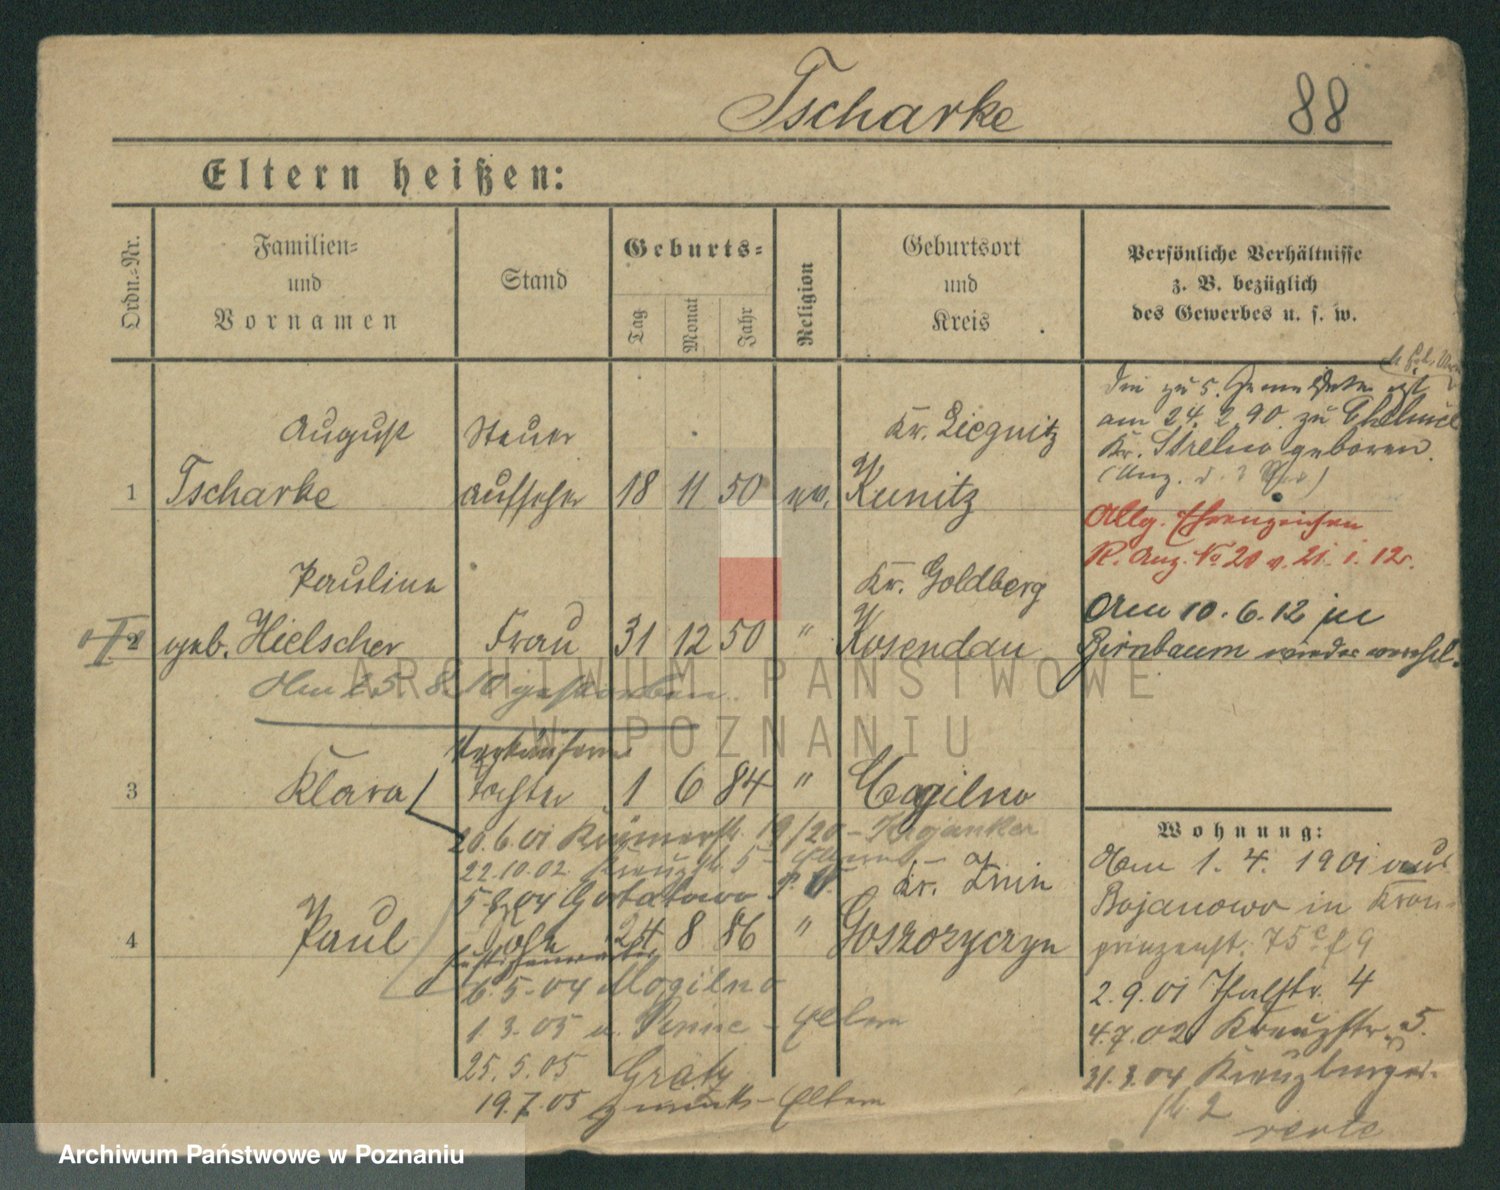 Tscharke 88
Eltern heißen:
Ordn.-Nr.
Familien-
und
Vornamen
Stand
Geburts-
Tag
Monat
Jahr
Religion
Geburtsort
und
Kreis
Persönliche Verhältnisse
z. B. bezüglich
des Gewerbes u. s. w.
August Steuer Kr. Liegnitz
1 Tscharke aufseher 18 11 50 ev. Kunitz
Die zu 5.
am 24. 2. 90. zu
Kr. Strelno geboren.
Allg. Ehrenzeichen
R. Anz. No 20 v. 21. 1. 12.
Pauline Kr. Goldberg
2 geb. Hielscher Frau 31 12 50 " Kosendau
Am 10. 6. 12 in
Birnbaum wieder
Am 25. 8. 10 gestorben.
Verkäuferin
3 Klara Tochter 1 6 84 " Mogilno
20.6.01 19/20 -
22.10.02 Kreuzstr 5 - Eltern -
Kr. Znin
4 Paul Sohn 24 8 86 "
6.5.04 Mogilno
1 3.05 a. Pinne - Eltern
25.5.05 Grätz
19.7.05 zurück - Eltern
Wohnung:
Am 1. 4. 1901 aus
Bojanowo in Kron-
prinzenst. 75
2.9.01 Thalstr. 4
4.7.02 Kreuzstr. 5.
31.3.04 Kreuzburger-
2
ARCHIWUM PAŃSTWOWE
W POZNANIU
Archiwum Państwowe w Poznaniu